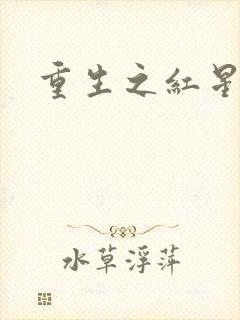 重生之紅星
水草浮萍